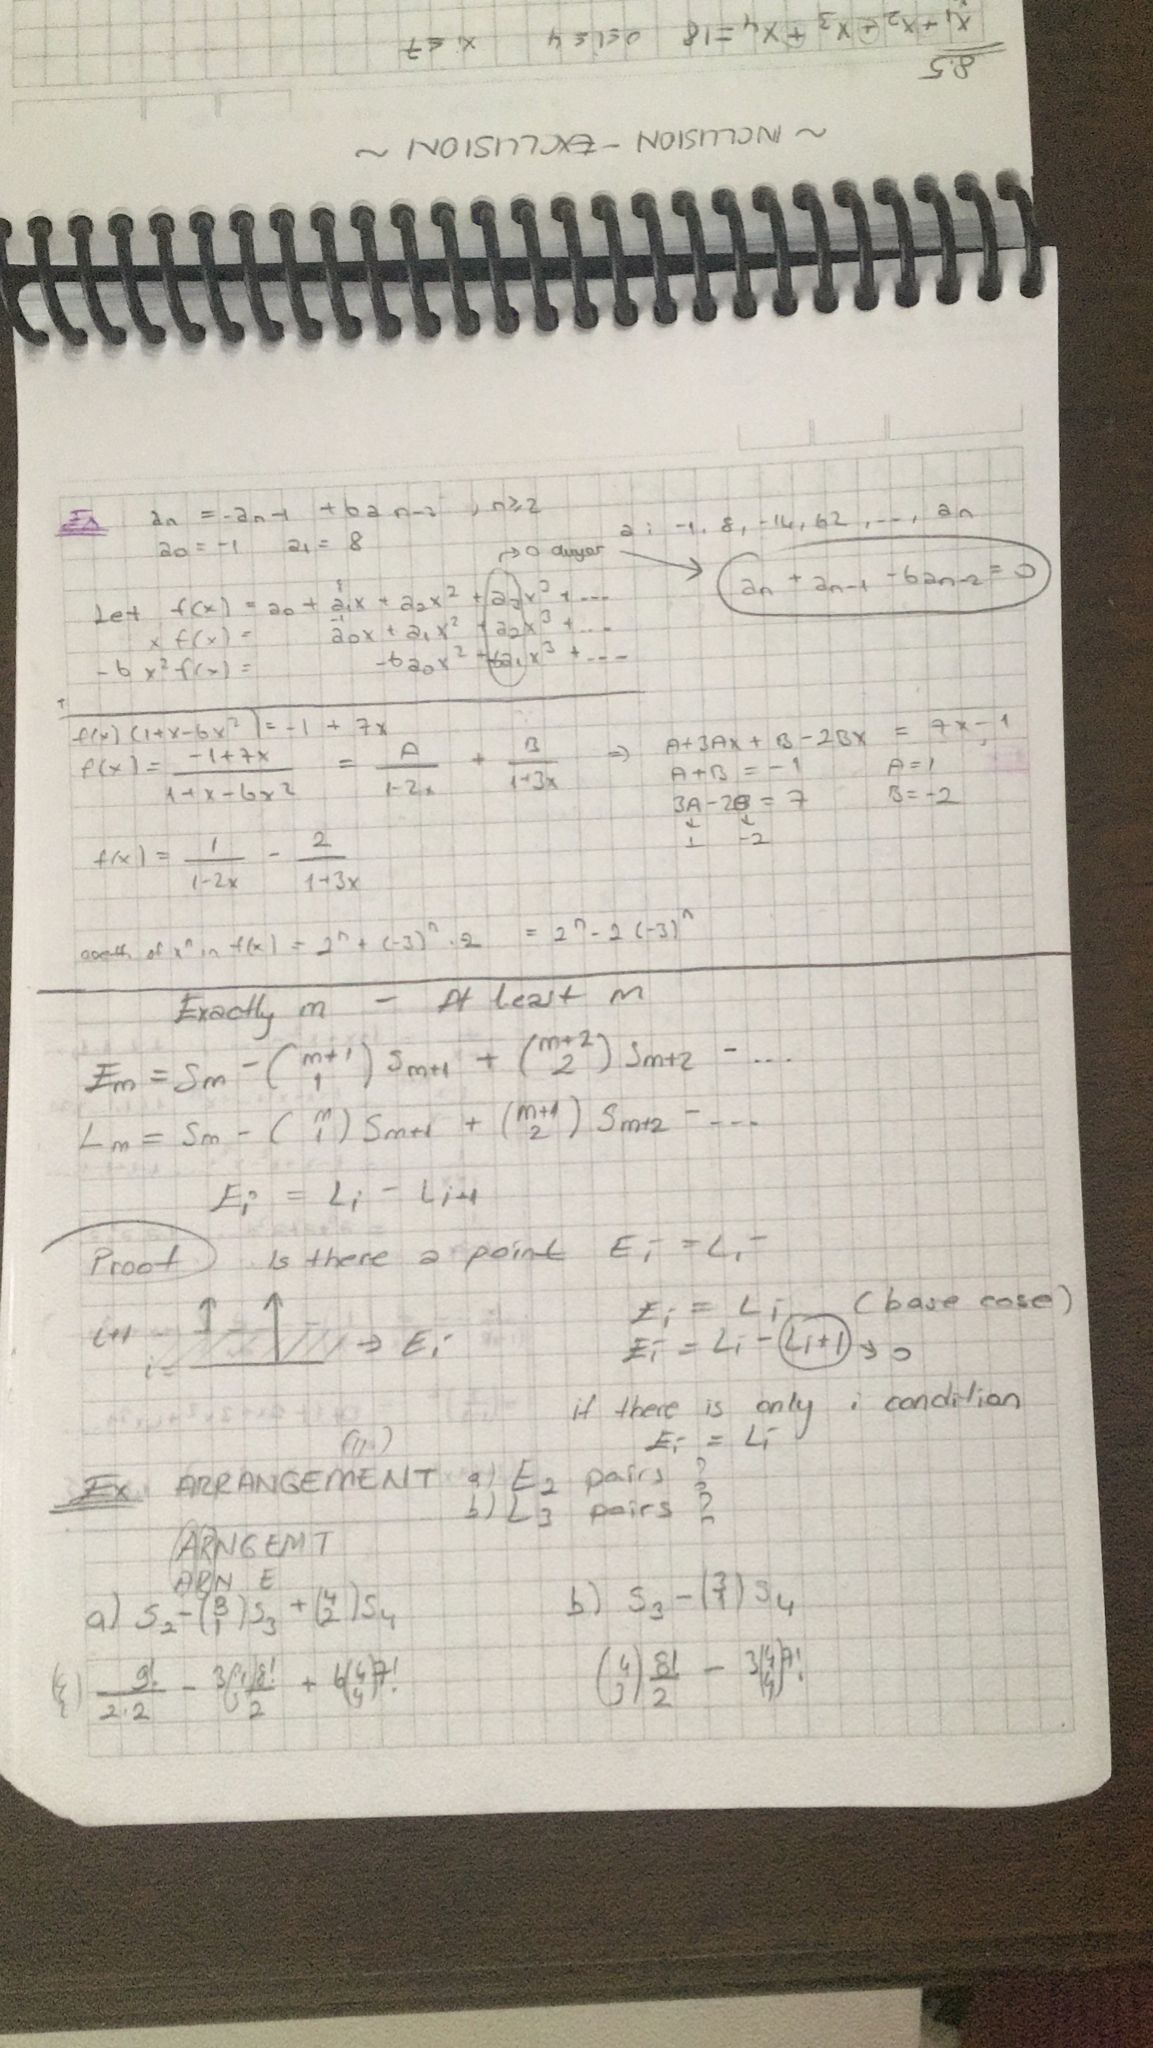 8.5
x₁ + x₂ + x₃ + x₄ = 18   0≤i≤4   xᵢ≤7
~ INCLUSION - EXCLUSION ~
Ex   aₙ = -aₙ₋₁ + 6aₙ₋₂ , n≥2
a₀ = -1   a₁ = 8
a: -1, 8, -14, 62, ..., aₙ
aₙ + aₙ₋₁ - 6aₙ₋₂ = 0
Let f(x) = a₀ + a₁x + a₂x² + a₃x³ + ...
x f(x) = a₀x + a₁x² + a₂x³ + ...
-6x² f(x) = -6a₀x² - 6a₁x³ + ...
+
f(x) (1+x-6x²) = -1 + 7x
f(x) = (-1+7x)/(1+x-6x²) = A/(1-2x) + B/(1+3x) ⇒ A+3Ax + B-2Bx = 7x-1
A+B = -1   A=1
3A-2B = 7   B=-2
1   -2
f(x) = 1/(1-2x) - 2/(1+3x)
coeff of xⁿ in f(x) = 2ⁿ + (-3)ⁿ . 2 = 2ⁿ - 2(-3)ⁿ
Exactly m - At least m
Eₘ = Sₘ - (m+1 1) Sₘ₊₁ + (m+2 2) Sₘ₊₂ - ...
Lₘ = Sₘ - (m 1) Sₘ₊₁ + (m+1 2) Sₘ₊₂ - ...
Eᵢ = Lᵢ - Lᵢ₊₁
Proof   Is there a point Eᵢ = Lᵢ
i+1
i   → Eᵢ
Eᵢ = Lᵢ (base case)
Eᵢ = Lᵢ - Lᵢ₊₁ → 0
if there is only i condition
Eᵢ = Lᵢ
Ex   ARRANGEMENT   a) E₂ pairs ?
b) L₃ pairs ?
ARNGEMT
ARN E
a) S₂ - (3 1)S₃ + (4 2)S₄
b) S₃ - (3 1) S₄
9!/(2.2) - 3 8!/2 + 6(4 4)7!
(4 3) 8!/2 - 3(4 4)7!